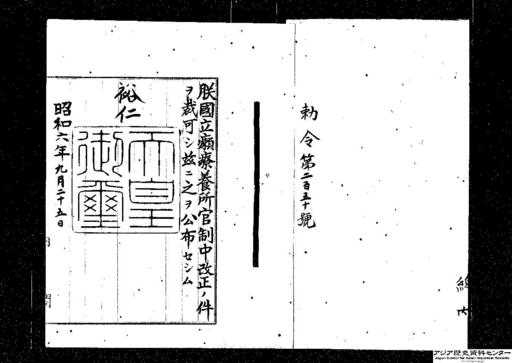 勅令第二百五十號
朕國立癩療養所官制中改正ノ件
ヲ裁可シ茲ニ之ヲ公布セシム
裕仁
天皇
御璽
昭和六年九月二十五日
アジア歴史資料センター
Japan Center for Asian Historical Records